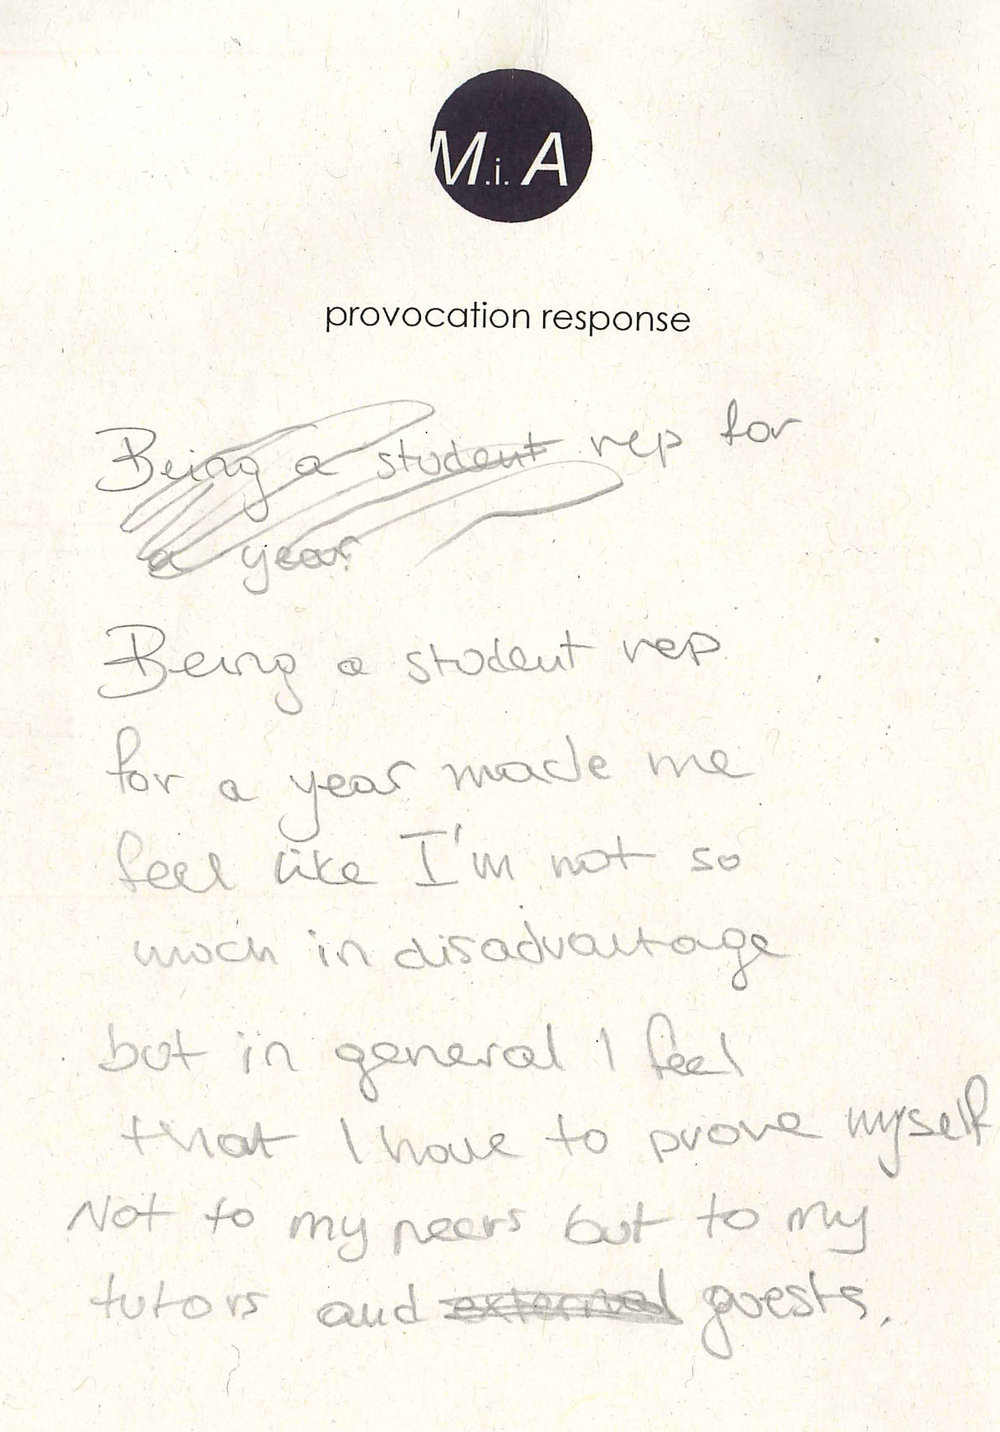 M.i.A
provocation response
Being a student rep for
a year
Being a student rep
for a year made me
feel like I'm not so
much in disadvantage
but in general I feel
that I have to prove myself
Not to my peers but to my
tutors and external guests.